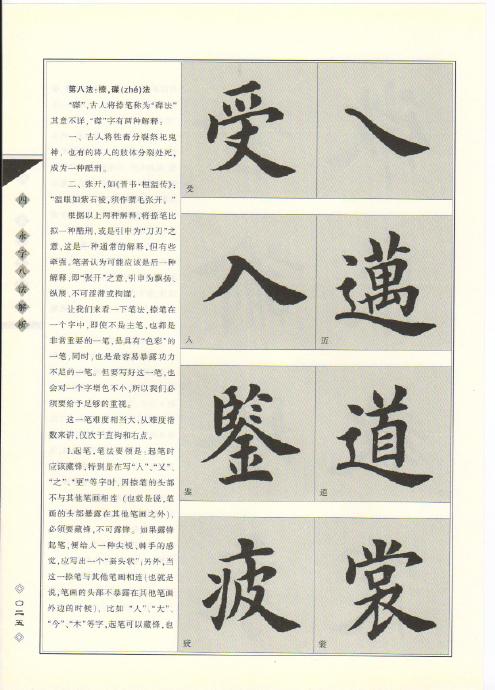 第八法:捺,磔(zhé)法
“磔”,古人将捺笔称为“磔法”
其意不详,“磔”字有两种解释:
一、古人将牲畜分裂祭祀鬼
神。也有的将人的肢体分裂处死,
成为一种酷刑。
二、张开,如《晋书·桓温传》:
“温眼如紫石棱,须作猬毛张开。”
根据以上两种解释,将捺笔比
拟一种酷刑,或是引申为“刀刃”之
意,这是一种通常的解释,但有些
牵强。笔者认为可能应该是后一种
解释,即“张开”之意,引申为飘扬、
纵展,不可淫滞或拘谨。
让我们来看一下笔法,捺笔在
一个字中,即使不是主笔,也都是
非常重要的一笔,是具有“色彩”的
一笔,同时,也是最容易暴露功力
不足的一笔。但要写好这一笔,也
会对一个字增色不小,所以我们必
须要给予足够的重视。
这一笔难度相当大,从难度指
数来讲,仅次于直钩和右点。
1.起笔,笔法要领是:起笔时
应该藏锋,特别是在写“人”、“乂”、
“之”、“更”等字时,因捺笔的头部
不与其他笔画相连(也就是说,笔
画的头部暴露在其他笔画之外),
必须要藏锋,不可露锋。如果露锋
起笔,便给人一种尖锐、棘手的感
觉,应写出一个“蚕头状”;另外,当
这一捺笔与其他笔画相连(也就是
说,笔画的头部不暴露在其他笔画
外边的时候),比如“人”、“大”、
“今”、“木”等字,起笔可以藏锋,也
受
受
入
入
邁
迈
鑒
鉴
道
道
疲
疲
裳
裳
四
永字八法解析
〇二五